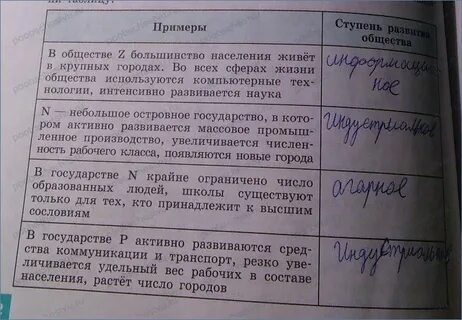 ни таблицу.
Примеры
Ступень развития
общества
В обществе Z большинство населения живёт
в крупных городах. Во всех сферах жизни
общества используются компьютерные тех-
нологии, интенсивно развивается наука
информацион
ное
N — небольшое островное государство, в кото-
ром активно развивается массовое промыш-
ленное производство, увеличивается числен-
ность рабочего класса, появляются новые города
Индустриальное
В государстве N крайне ограничено число
образованных людей, школы существуют
только для тех, кто принадлежит к высшим
сословиям
агарное
В государстве P активно развиваются сред-
ства коммуникации и транспорт, резко уве-
личивается удельный вес рабочих в составе
населения, растёт число городов
Индустриальное